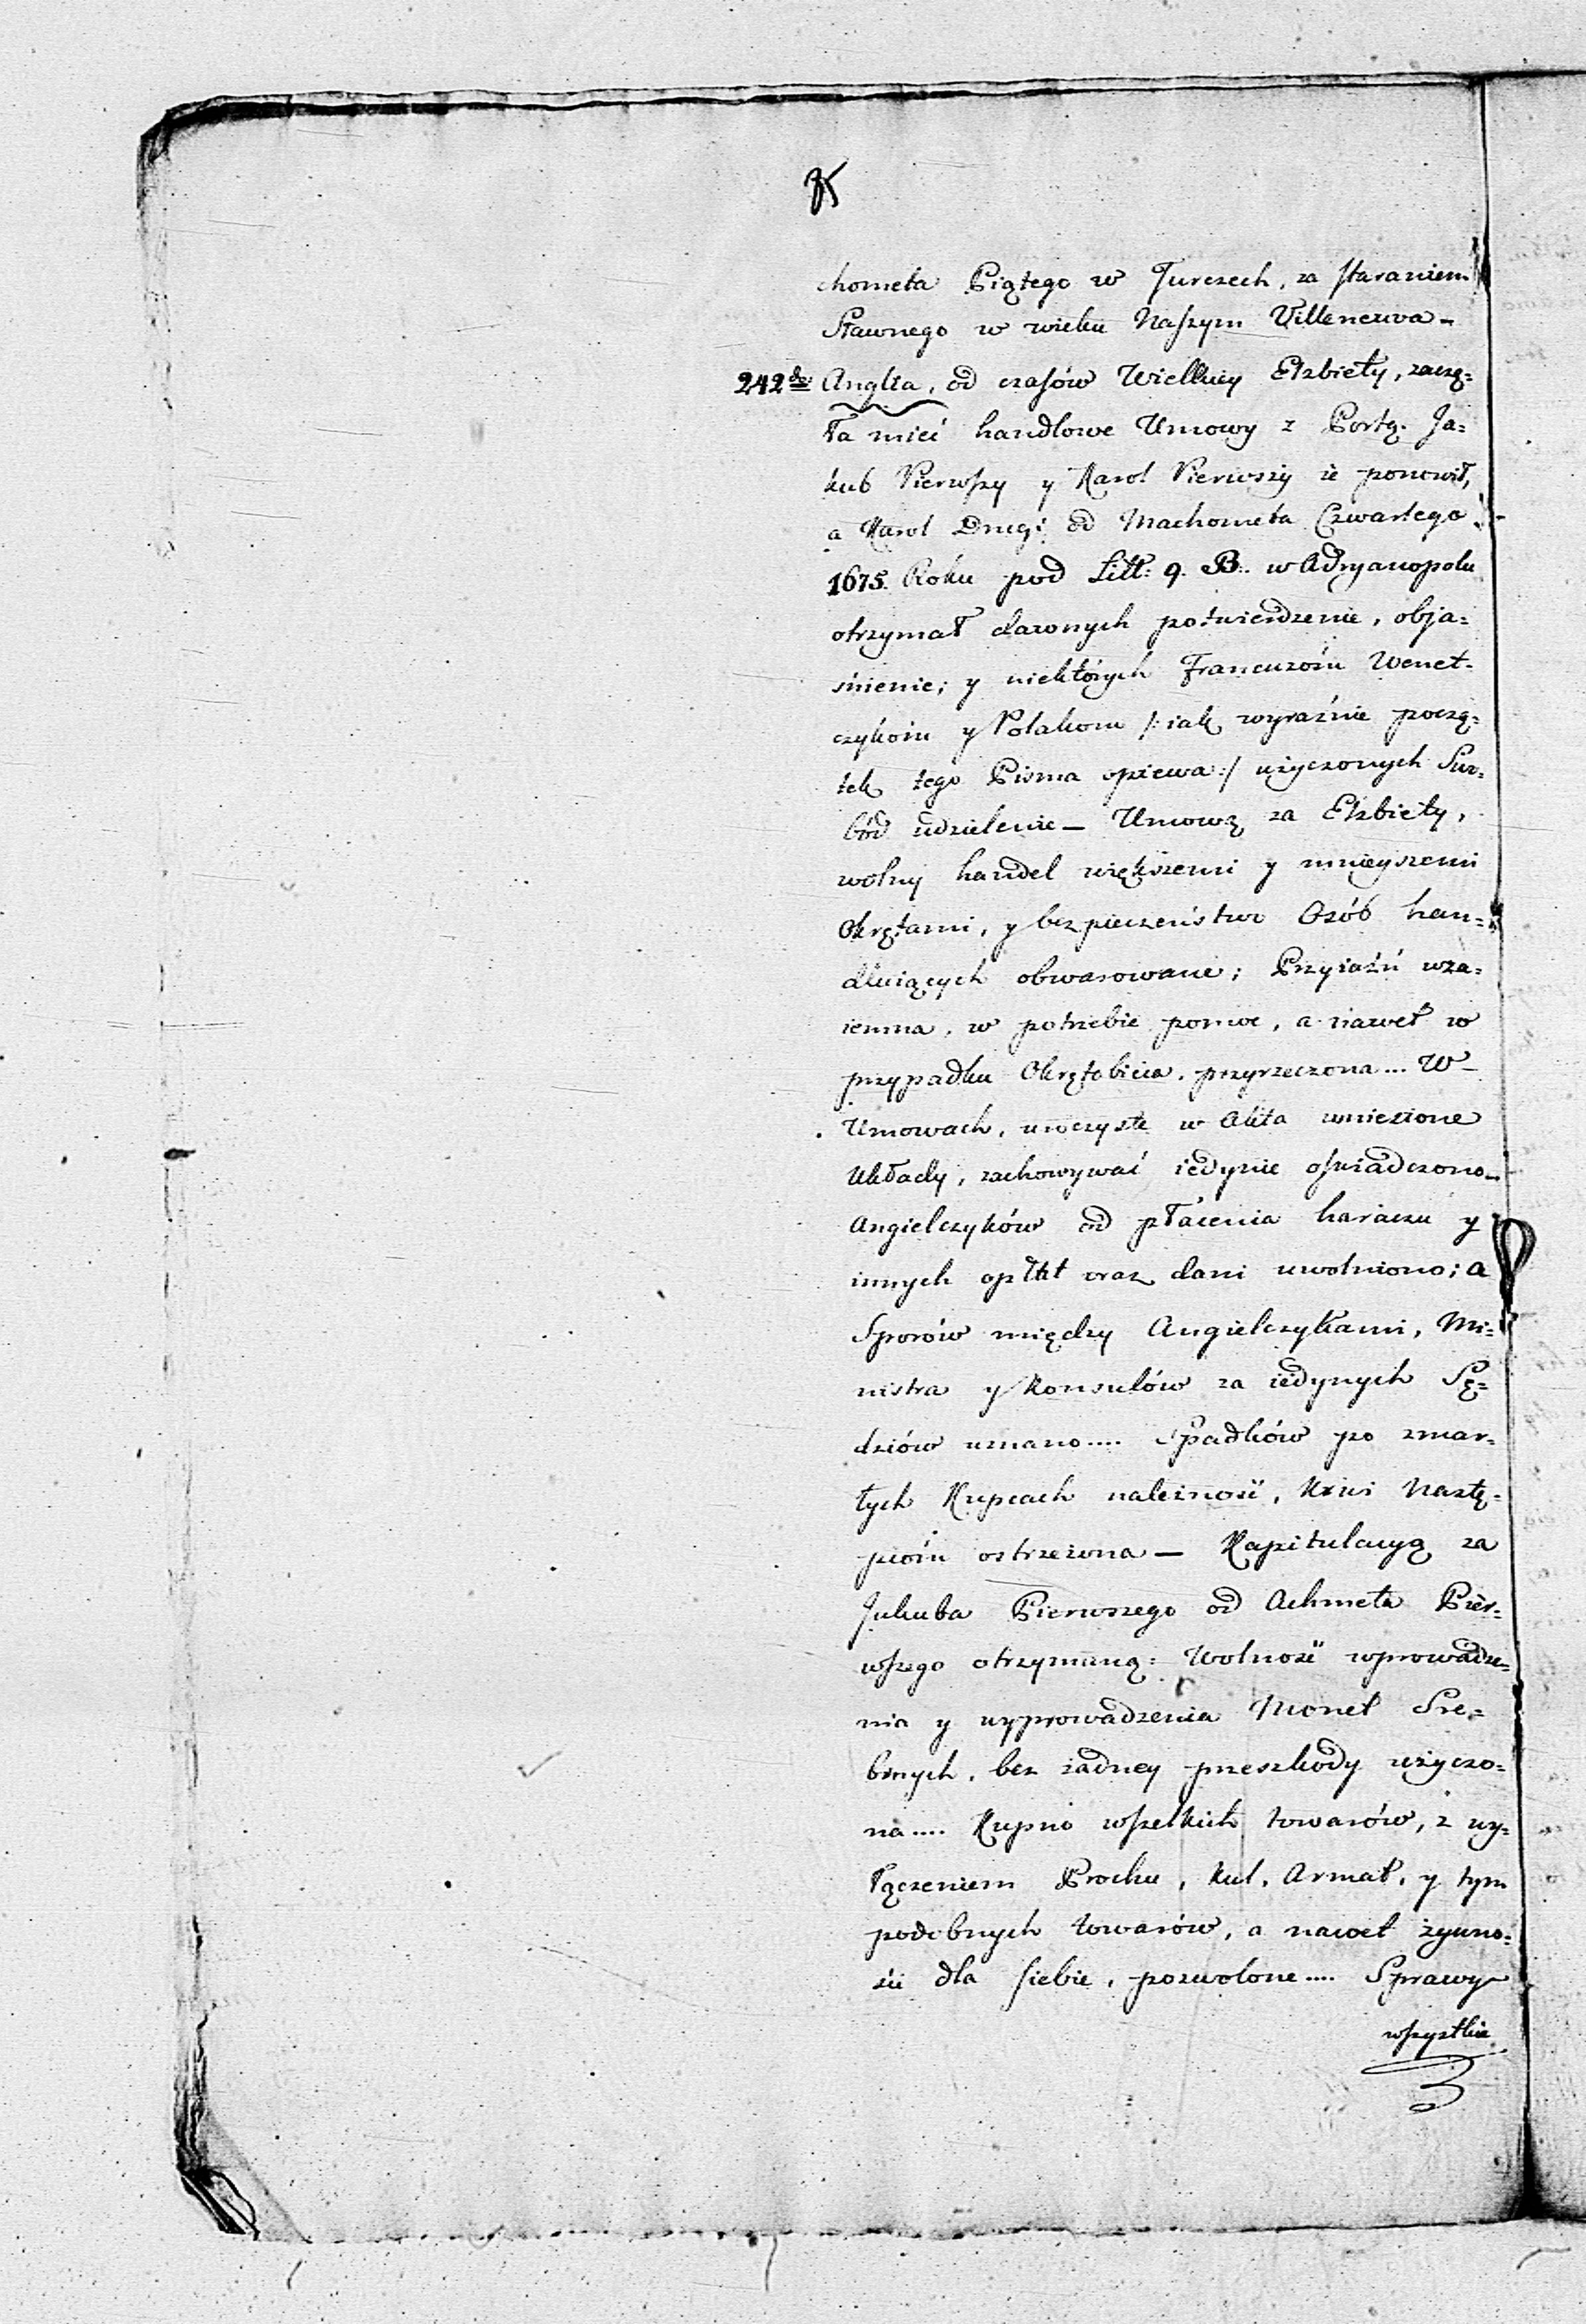 chometa Piątego w Turczech, za staraniem
Sławnego w wieku Naszym Villeneuva –
242do Anglia, od czasów Wielkiey Elzbiety, zaczę=
ła mieć handlowe Umowy z Portą. Ja=
kub Pierwszy y Karol Pierwszy ie ponowił,
a Karol Drugi od Machometa Czwartego
1675. Roku pod Litt: 9. B:. w Adryanopolu
otrzymał dawnych potwierdzenie, obja=
śnienie; y niektórych Francuzóm Wenet=
czykóm y Polakom /: iak wyraźnie począ=
tek tego Pisma opiewa :/ użyczonych Swo=
bód udzielenie – Umową za Elzbiety,
wolny handel większemi y mnieyszemi
Okrętami, y bezpieczeństwo Osób han=
dluiących obwarowane; Przyiaźń wza=
iemna, w potrzebie pomoc, a nawet w
przypadku Okrętobicia, przyrzeczona ... W –
Umowach, uroczyste w Akta wniesione
Układy, zachowywać iedynie oświadczono –
Angielczyków od płacenia haraczu y
innych opłat oraz dani uwolniono; a
Sporów między Angielczykami, Mi=
nistra y Konsulów za iedynych Sę=
dziów uznano .... Spadków po zmar=
łych Kupcach należność, Krwi Nastę=
pcóm ostrzeżona – Kapitulacyą za
Jakuba Pierwszego od Achmeta Pier=
wszego otrzymaną: Wolność wprowadze=
nia y wyprowadzenia Monet Sre=
brnych, bez żadney przeszkody użyczo=
na .... Kupno wszelkich towarów, z wy=
łączeniem Prochu, Kul, Armat, y tym
podobnych towarów, a nawet żywno=
ści dla siebie, pozwolone .... Sprawy
wszystkie